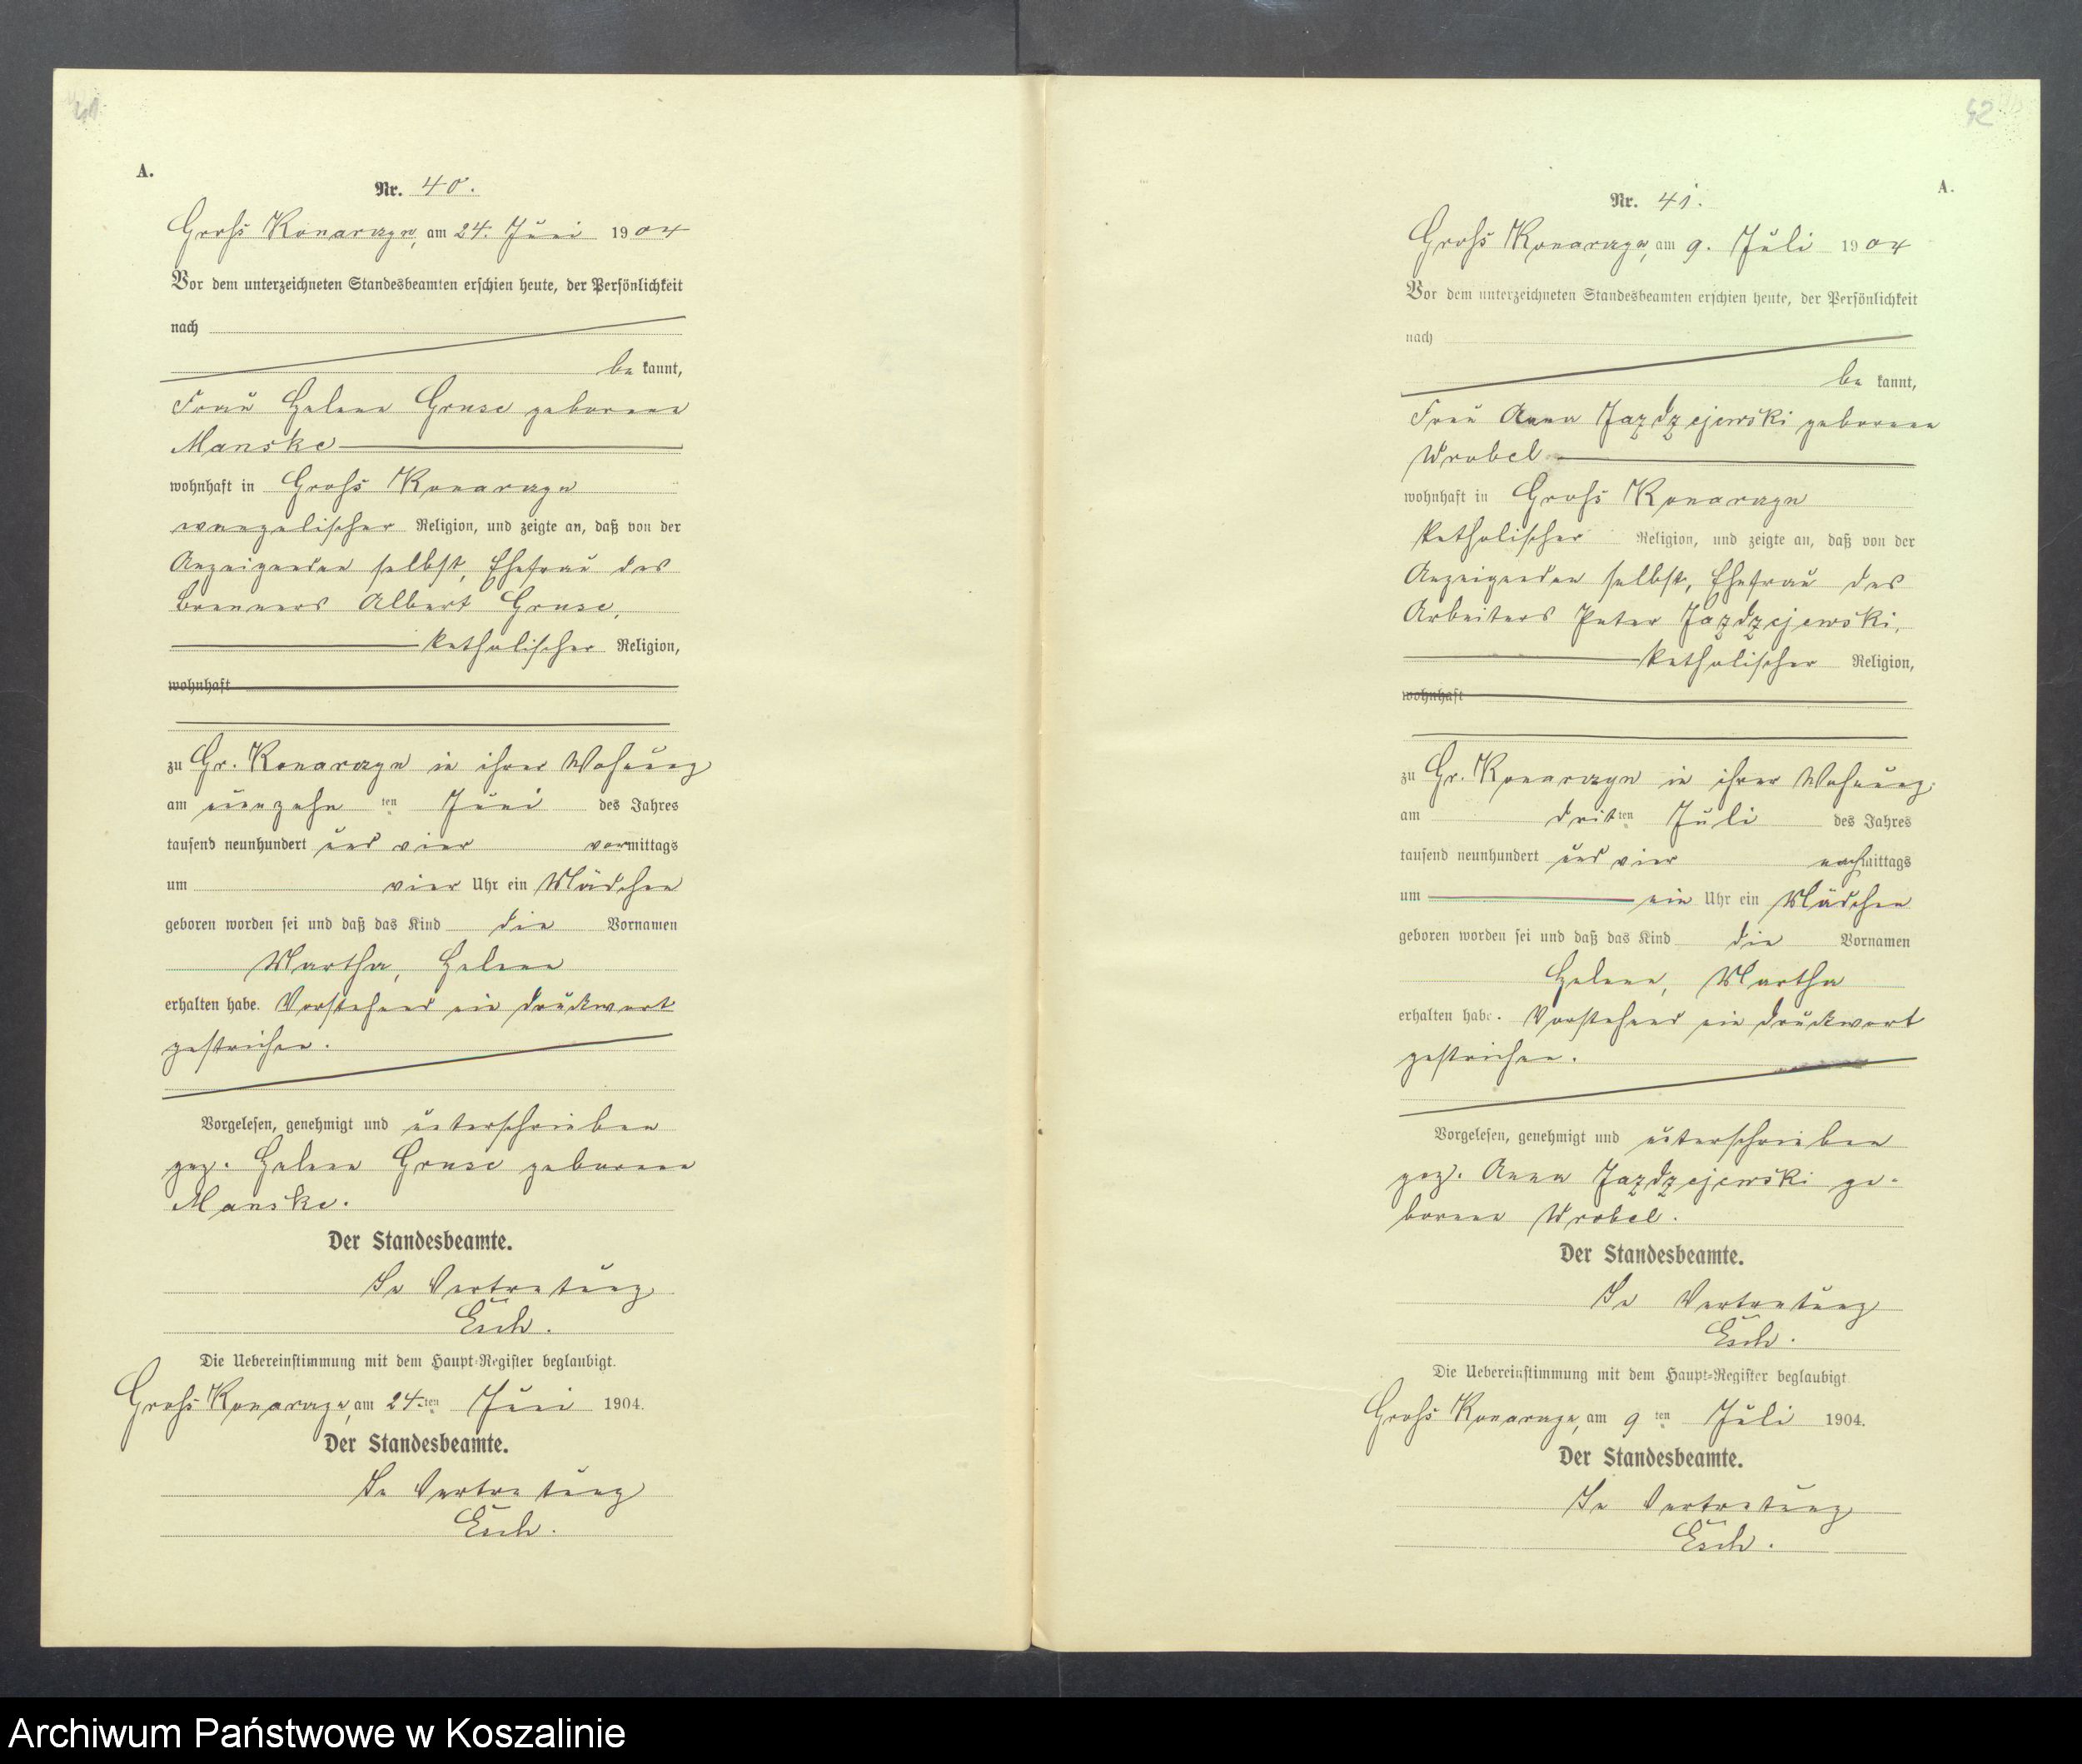 41
A.
Nr. 40.
Groß Konarczyn, am 24. Juni 1904
Vor dem unterzeichneten Standesbeamten erschien heute, der Persönlichkeit
nach
be kannt,
Frau Helene Gruse geborene
Manske
wohnhaft in Groß Konarczyn
evangelischer Religion, und zeigte an, daß von der
Anzeigenden selbst, Ehefrau des
Brenners Albert Gruse,
katholischer Religion,
wohnhaft
zu Gr. Konarczyn in ihrer Wohnung
am neunzehn ten Juni des Jahres
tausend neunhundert und vier vormittags
um vier Uhr ein Mädchen
geboren worden sei und daß das Kind die Vornamen
Martha, Helene
erhalten habe. Vorstehend ein Druckwort
gestrichen.
Vorgelesen, genehmigt und unterschrieben
gez. Helene Gruse geborene
Manske.
Der Standesbeamte.
In Vertretung
Esch.
Die Uebereinstimmung mit dem Haupt-Register beglaubigt.
Groß Konarczyn, am 24ten Juni 1904.
Der Standesbeamte.
In Vertretung
Esch.
42
A.
Nr. 41.
Groß Konarczyn, am 9. Juli 1904
Vor dem unterzeichneten Standesbeamten erschien heute, der Persönlichkeit
nach
be kannt,
Frau Anna Jazdzejewski geborene
Wrobel
wohnhaft in Groß Konarczyn
katholischer Religion, und zeigte an, daß von der
Anzeigenden selbst, Ehefrau des
Arbeiters Peter Jazdzejewski,
katholischer Religion,
wohnhaft
zu Gr. Konarczyn in ihrer Wohnung
am dritten Juli des Jahres
tausend neunhundert und vier nachmittags
um ein Uhr ein Mädchen
geboren worden sei und daß das Kind die Vornamen
Helene, Martha
erhalten habe. Vorstehend ein Druckwort
gestrichen.
Vorgelesen, genehmigt und unterschrieben
gez. Anna Jazdzejewski ge-
borene Wrobel.
Der Standesbeamte.
In Vertretung
Esch.
Die Uebereinstimmung mit dem Haupt-Register beglaubigt
Groß Konarczyn, am 9 ten Juli 1904.
Der Standesbeamte.
In Vertretung
Esch.
Archiwum Państwowe w Koszalinie